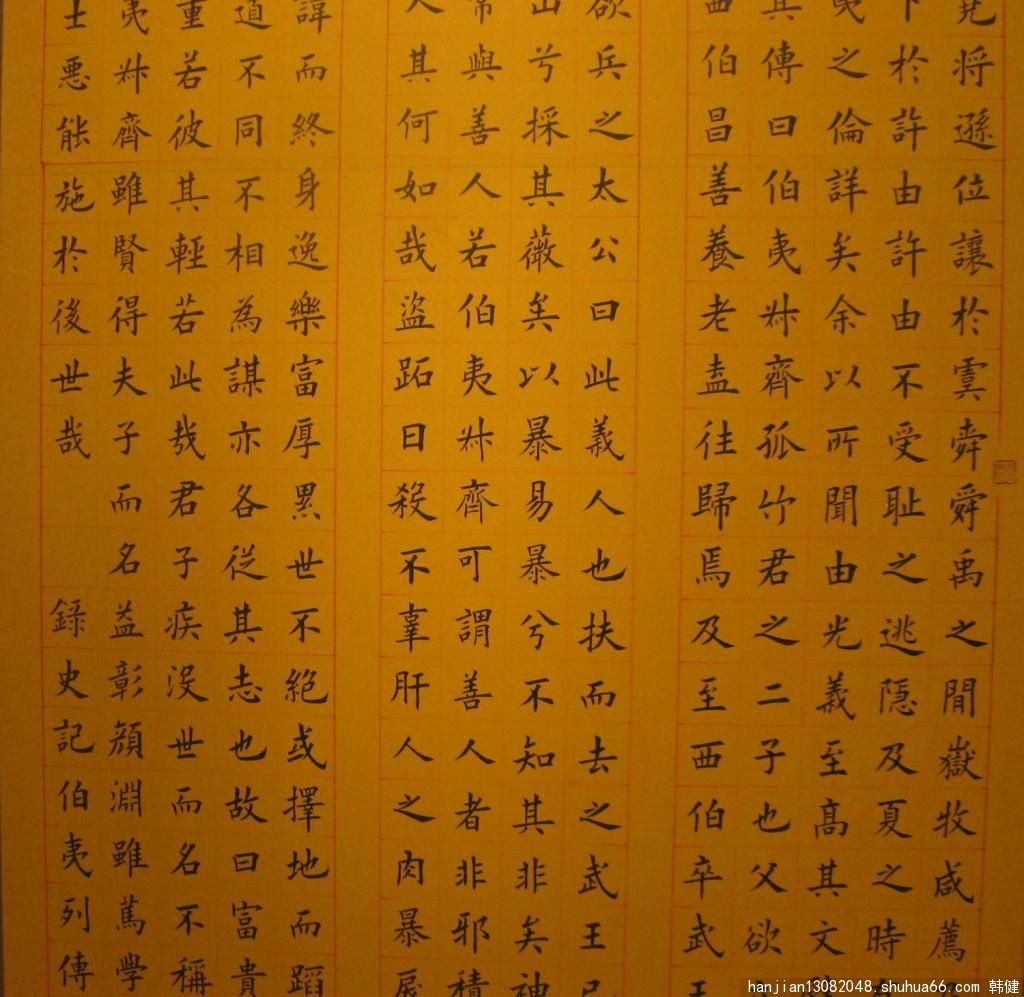 堯將遜位讓於虞舜舜禹之間嶽牧咸薦
下於許由許由不受恥之逃隱及夏之時
夷之倫詳矣余以所聞由光義至高其文
其傳曰伯夷叔齊孤竹君之二子也父欲
西伯昌善養老盍往歸焉及至西伯卒武王
欲兵之太公曰此義人也扶而去之武王已
山兮採其薇矣以暴易暴兮不知其非矣神
常與善人若伯夷叔齊可謂善人者非邪積
人其何如哉盜跖日殺不辜肝人之肉暴戾
諱而終身逸樂富厚累世不絕或擇地而蹈
道不同不相為謀亦各從其志也故曰富貴
重若彼其輕若此哉君子疾沒世而名不稱
夷叔齊雖賢得夫子而名益彰顏淵雖篤學
士惡能施於後世哉 錄史記伯夷列傳
hanjian13082048.shuhua66.com 韩健